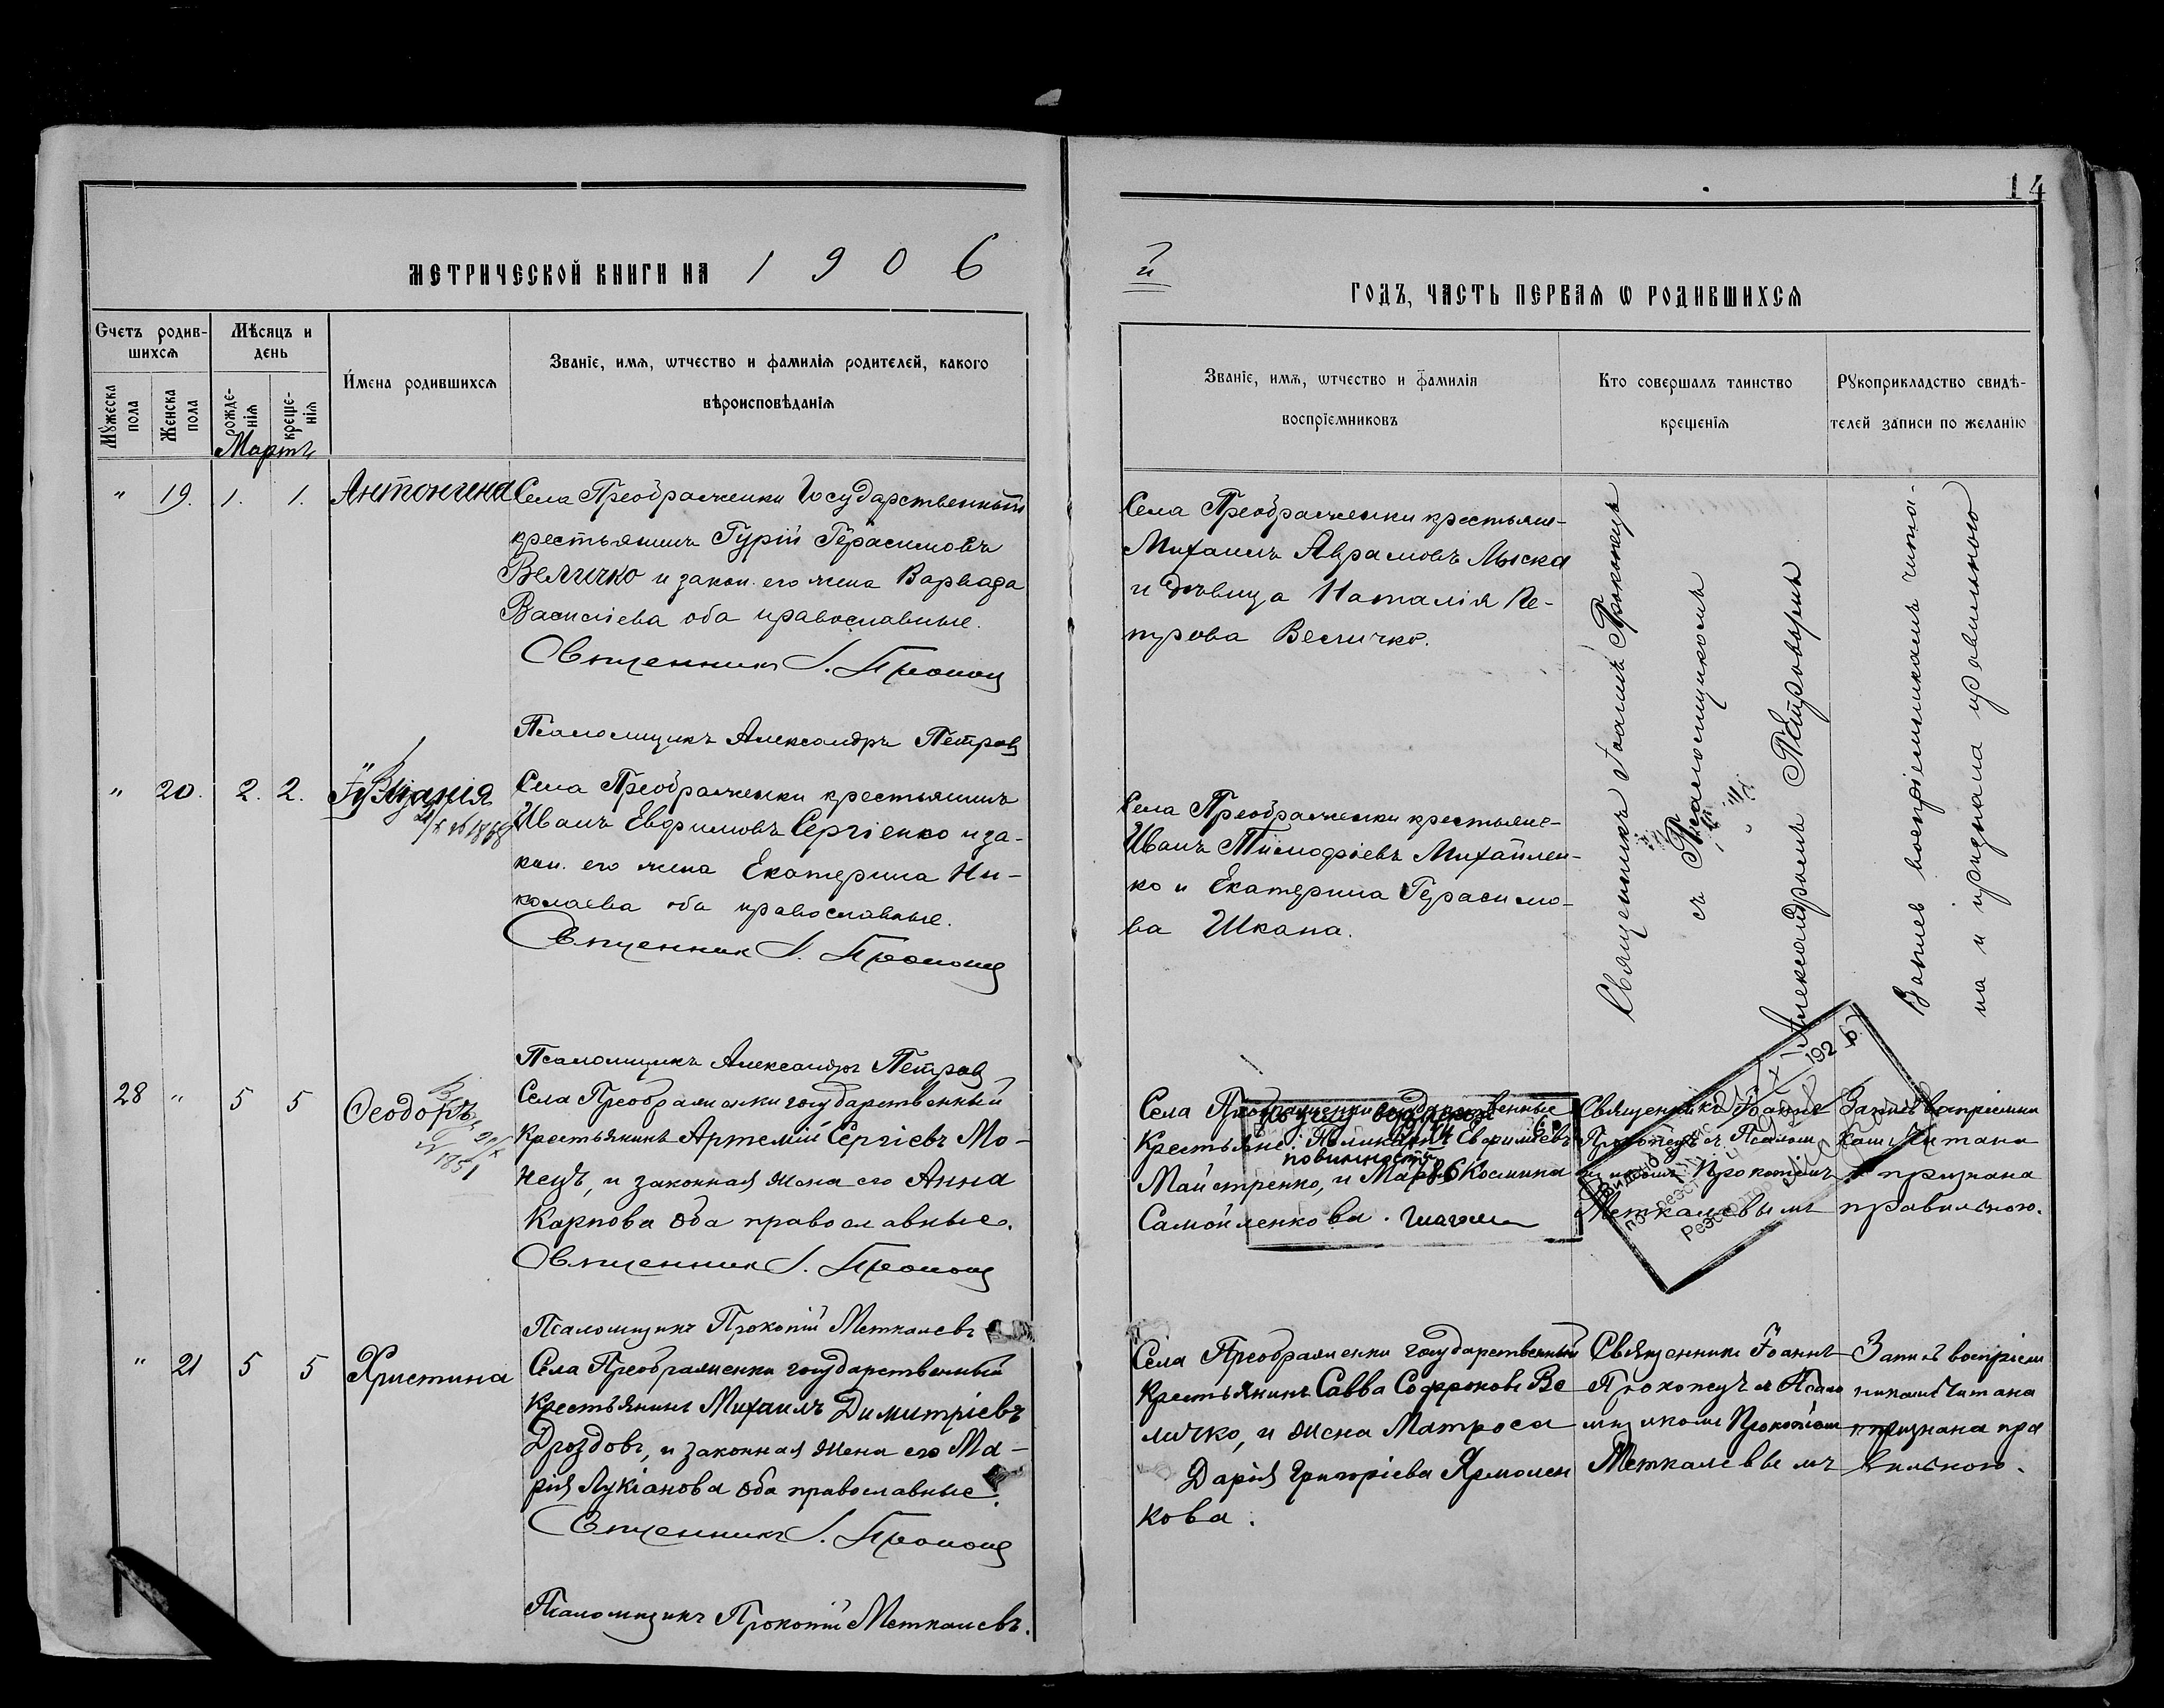 14
МЕТРИЧЕСКОЙ КНИГИ НА 1906
й
ГОДЪ, ЧАСТЬ ПЕРВАЯ Ѡ РОДИВШИХСЯ
Счетъ родив-
шихсѧ
Мѣсяцъ и
день
Мужеска
пола
Женска
пола
рожде-
нія
креще-
нія
Имена родившихсѧ
Званіе, имѧ, ѡтчество и фамилія родителей, какого
вѣроисповѣданія
Званіе, имѧ, ѡтчество и фамилія
воспріемниковъ
Кто совершалъ таинство
крещенія
Рукоприкладство свидѣ-
телей записи по желанію
Мартъ
" 19. 1. 1. Антонина
Села Преображенки Государственный
крестьянинъ Гурій Герасимовъ
Величко и закон. его жена Варвара
Василіева оба православные.
Священникъ І. Прокопец
Псаломщикъ Александръ Петров
Села Преображенки крестьяне
Михаилъ Аврамовъ Лыска
и дѣвица Наталія Пе-
трова Величко.
Священникъ Іоаннъ Прокопецъ
съ Псаломщикомъ
Александромъ
Запись воспріемникамъ чита-
на и признана правильною
" 20. 2. 2.
Села Преображенки крестьянинъ
Иванъ Евфимовъ Сергіенко и за-
кон. его жена Екатерина Ни-
колаева оба православные.
Священник І. Прокопец
Псаломщикъ Александръ Петров
Села Преображенки крестьяне
Иванъ Тимофіевъ Михайлен-
ко и Екатерина Герасимо-
ва Шкапа.
28 " 5 5 Ѳеодоръ
№ 1851
Села Преображенки государственный
Крестьянинъ Артемій Сергіевъ Мо-
нецъ, и законная жена его Анна
Карпова оба православные.
Священник І. Прокопец
Псаломщикъ Прокопій Меткалевъ
Села Преображенки государственные
Крестьяне: Евфиміевъ
Майстренко, и Марія Космина
Самойленкова.
повинности
192
Священникъ Іоаннъ
Прокопецъ и Псалом
щикомъ Прокопіемъ
Меткалевымъ
Запись воспріемни
камъ Читана
и признана
правильною.
" 21 5 5 Христина
Села Преображенки государственный
Крестьянинъ Михаилъ Димитріевъ
Дроздовъ, и законная жена его Ма-
рія Лукіанова оба православные.
Священникъ І. Прокопец
Псаломщикъ Прокопій Меткалевъ.
Села Преображенки государственный
Крестьянинъ Савва Софроновъ Ве
личко, и жена Матроса
Дарія Григоріева Ярмолен
кова.
Священникъ Іоаннъ
Прокопецъ и Псало
мщикомъ Прокопіемъ
Меткалевымъ
Запись воспріем
никамъ Читана
и признана пра
вильною.